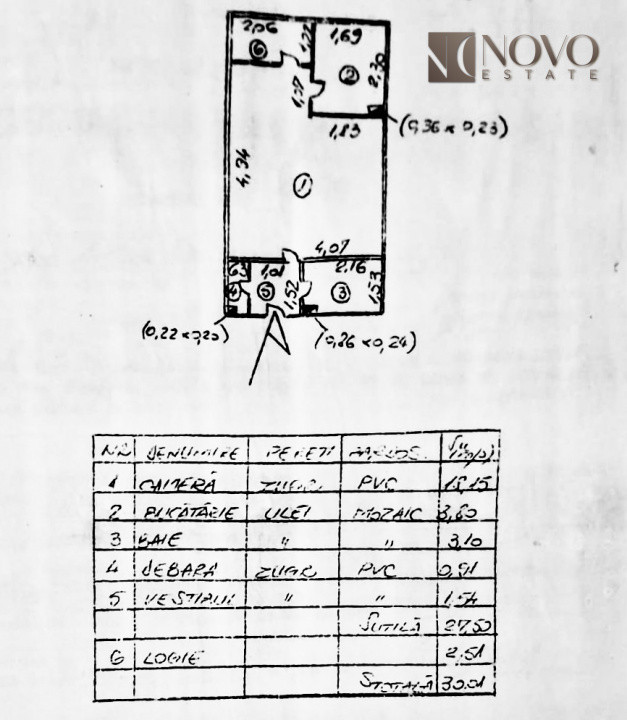 NOVO
ESTATE
2,06
1,22
1,69
6
2
2,30
1,07
(0,36 x 0,23)
1,83
4,94
1
4,07
63
1,01
2,16
4
5
1,52
3
1,53
(0,22 x 0,20)
(0,26 x 0,24)
NR DENUMIRE PERETI PARDOS. Su
1 CAMERĂ ZUGR PVC
2 BUCĂTĂRIE ULEI MOZAIC 3,80
3 BAIE " " 3,10
4 DEBARA ZUGR PVC 0,91
5 VESTIBUL " " 1,54
SUTILĂ 27,50
6 LOGIE 2,51
STOTALĂ 30,01